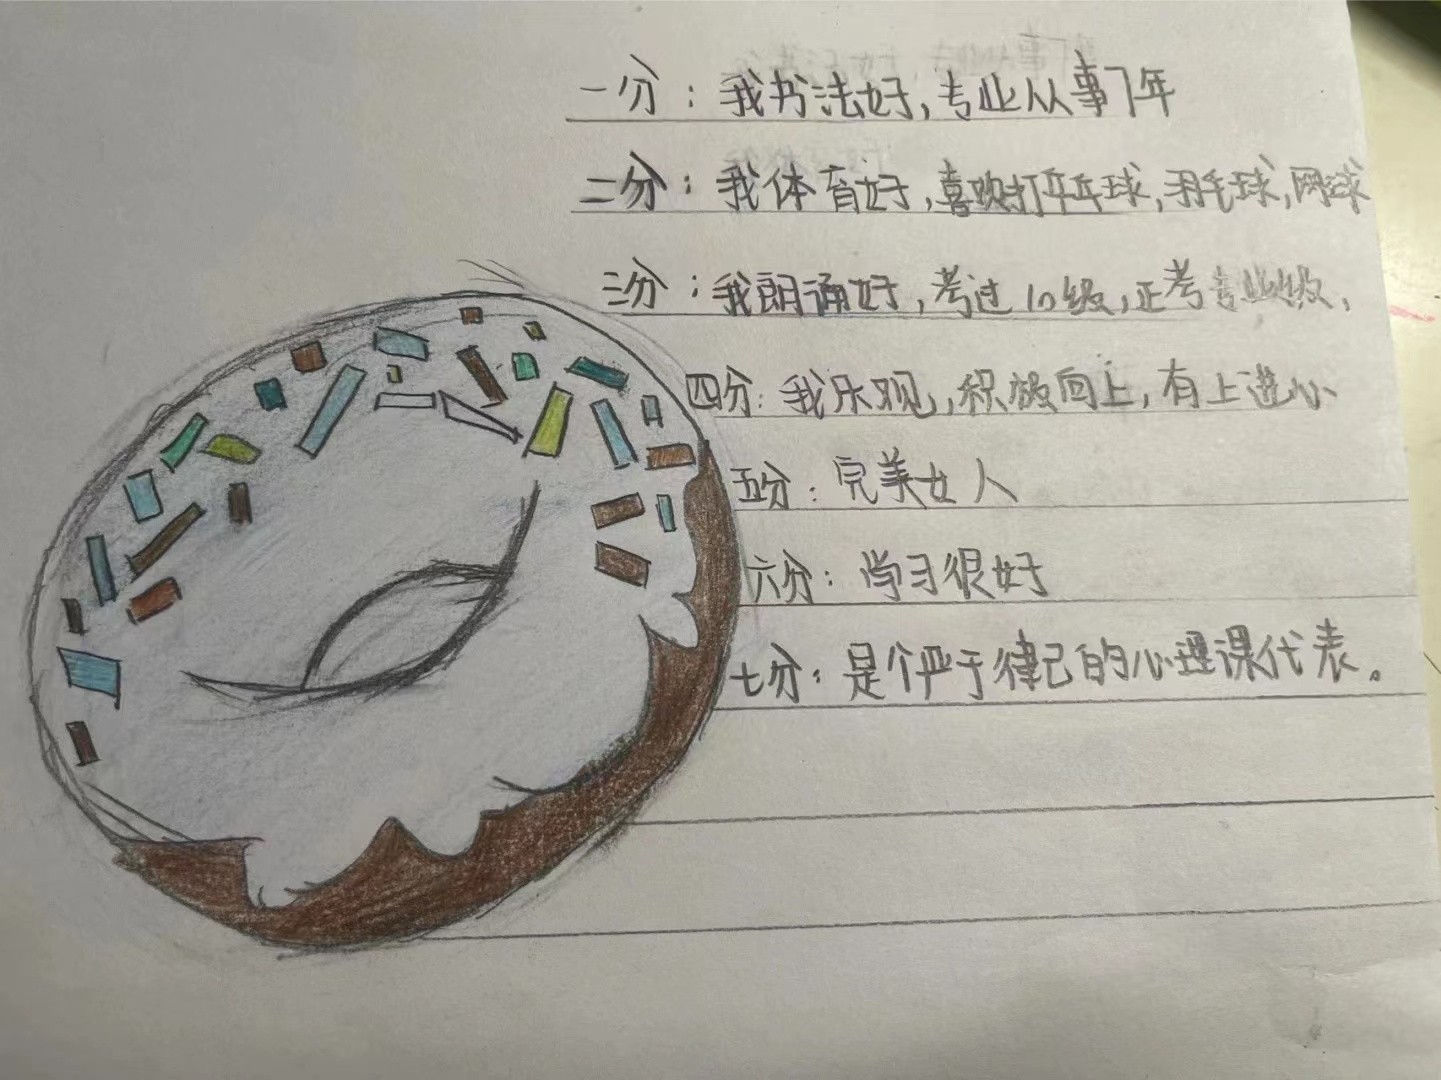 一分：我书法好，专业从事7年
二分：我体育好，喜欢打乒乓球，羽毛球，网球
三分：我朗诵好，考过10级，正考专业级，
四分：我乐观，积极向上，有上进心
五分：完美女人
六分：学习很好
七分：是个严于律己的心理课代表。